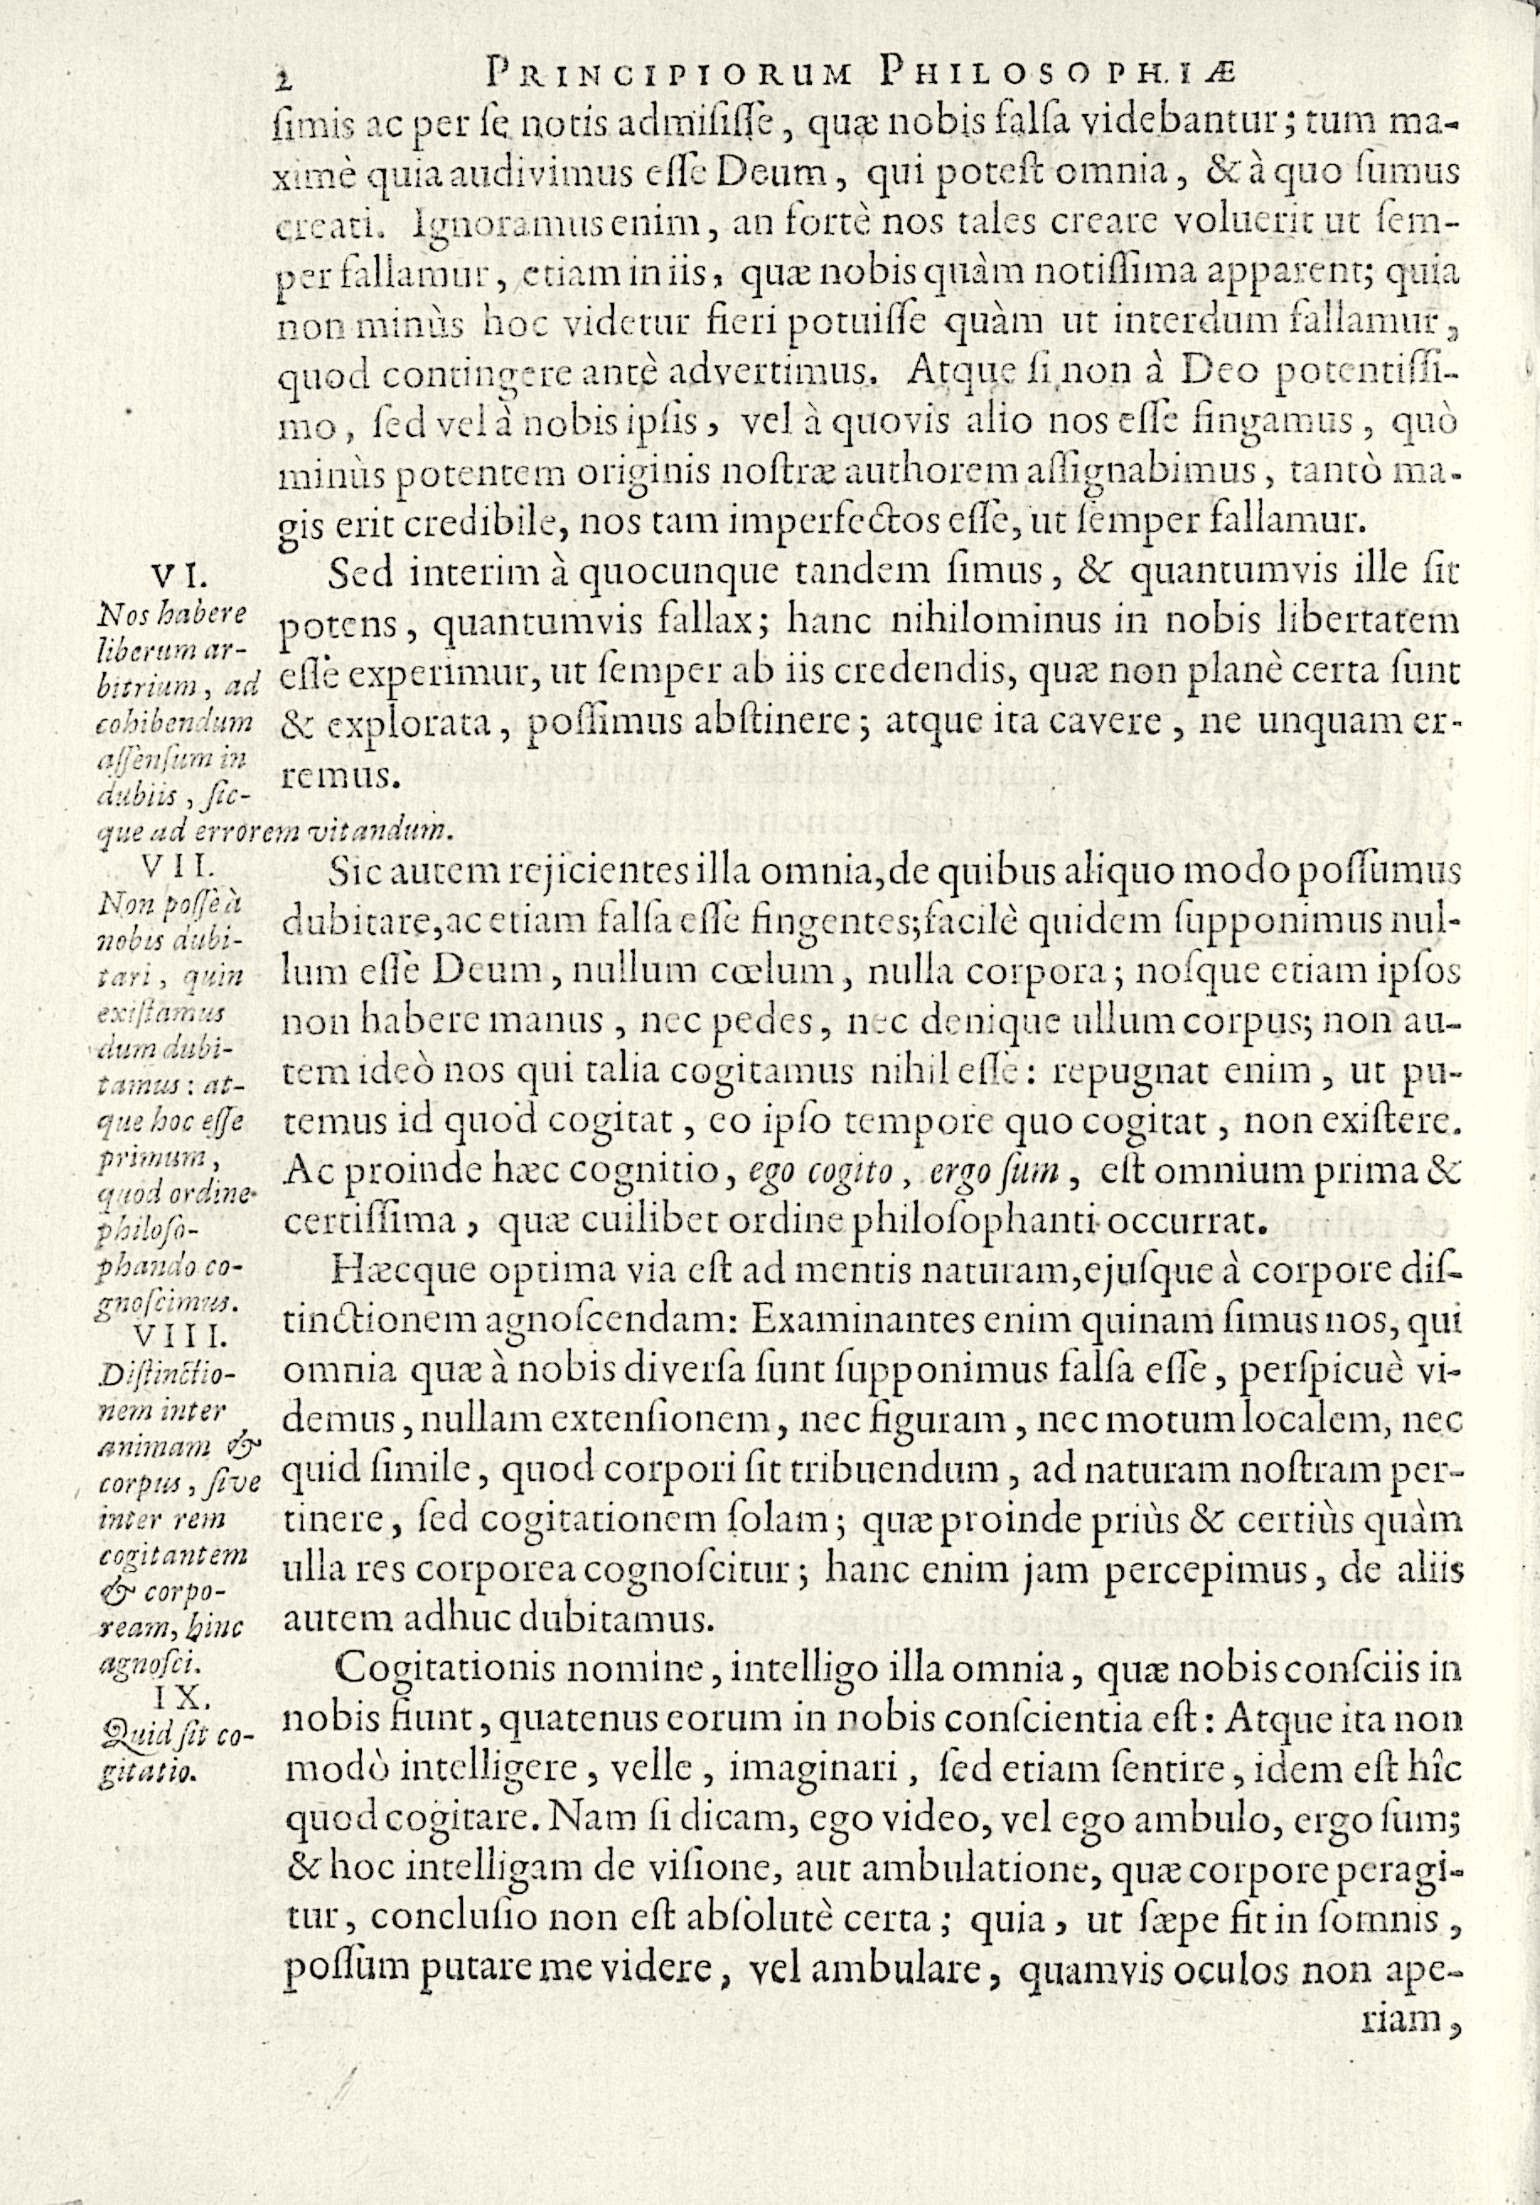 2 PRINCIPIORUM PHILOSOPHIÆ
ſimis ac per ſe notis admiſiſſe, quæ nobis falſa videbantur; tum ma-
ximè quia audivimus eſſe Deum, qui poteſt omnia, & à quo ſumus
creati. Ignoramus enim, an fortè nos tales creare voluerit ut ſem-
per fallamur, etiam in iis, quæ nobis quàm notiſſima apparent; quia
non minùs hoc videtur fieri potuiſſe quàm ut interdum fallamur,
quod contingere antè advertimus. Atque ſi non à Deo potentiſſi-
mo, ſed vel à nobis ipſis, vel à quovis alio nos eſſe fingamus, quò
minùs potentem originis noſtræ authorem aſſignabimus, tantò ma-
gis erit credibile, nos tam imperfectos eſſe, ut ſemper fallamur.
VI.
Nos habere
liberum ar-
bitrium, ad
cohibendum
aſſenſum in
dubiis, ſic-
que ad errorem vitandum.
Sed interim à quocunque tandem ſimus, & quantumvis ille ſit
potens, quantumvis fallax; hanc nihilominus in nobis libertatem
eſſe experimur, ut ſemper ab iis credendis, quæ non planè certa ſunt
& explorata, poſſimus abſtinere; atque ita cavere, ne unquam er-
remus.
VII.
Non poſſe à
nobis dubi-
tari, quin
exiſtamus
dum dubi-
tamus: at-
que hoc eſſe
primum,
quod ordine
philoſo-
phando co-
gnoſcimus.
Sic autem rejicientes illa omnia, de quibus aliquo modo poſſumus
dubitare, ac etiam falſa eſſe fingentes; facilè quidem ſupponimus nul-
lum eſſe Deum, nullum cœlum, nulla corpora; noſque etiam ipſos
non habere manus, nec pedes, nec denique ullum corpus; non au-
tem ideò nos qui talia cogitamus nihil eſſe: repugnat enim, ut pu-
temus id quod cogitat, eo ipſo tempore quo cogitat, non exiſtere.
Ac proinde hæc cognitio, ego cogito, ergo ſum, eſt omnium prima &
certiſſima, quæ cuilibet ordine philoſophanti occurrat.
VIII.
Diſtinctio-
nem inter
animam &
corpus, ſive
inter rem
cogitantem
& corpo-
ream, hinc
agnoſci.
Hæcque optima via eſt ad mentis naturam, ejuſque à corpore diſ-
tinctionem agnoſcendam: Examinantes enim quinam ſimus nos, qui
omnia quæ à nobis diverſa ſunt ſupponimus falſa eſſe, perſpicuè vi-
demus, nullam extenſionem, nec figuram, nec motum localem, nec
quid ſimile, quod corpori ſit tribuendum, ad naturam noſtram per-
tinere, ſed cogitationem ſolam; quæ proinde priùs & certiùs quàm
ulla res corporea cognoſcitur; hanc enim jam percepimus, de aliis
autem adhuc dubitamus.
IX.
Quid ſit co-
gitatio.
Cogitationis nomine, intelligo illa omnia, quæ nobis conſciis in
nobis fiunt, quatenus eorum in nobis conſcientia eſt: Atque ita non
modò intelligere, velle, imaginari, ſed etiam ſentire, idem eſt hîc
quod cogitare. Nam ſi dicam, ego video, vel ego ambulo, ergo ſum;
& hoc intelligam de viſione, aut ambulatione, quæ corpore peragi-
tur, concluſio non eſt abſolutè certa; quia, ut ſæpe fit in ſomnis,
poſſum putare me videre, vel ambulare, quamvis oculos non ape-
riam,